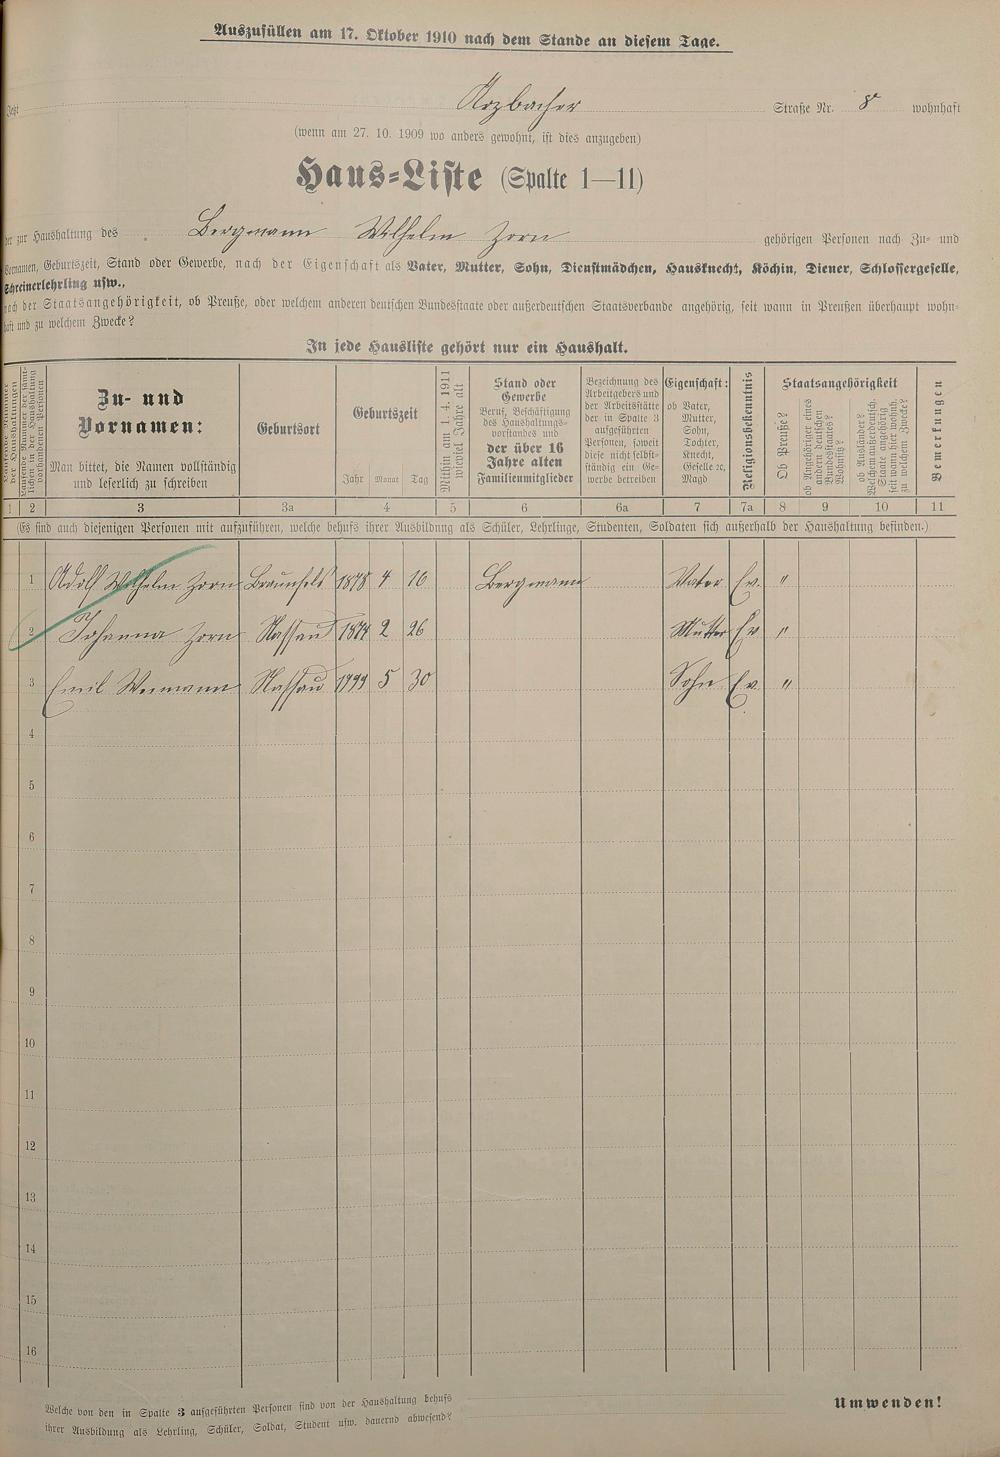 Auszufüllen am 17. Oktober 1910 nach dem Stande an diesem Tage.
Jetzt Arzbacher Straße Nr. 8 wohnhaft
(wenn am 27. 10. 1909 wo anders gewohnt, ist dies anzugeben)
Haus-Liste (Spalte 1—11)
der zur Haushaltung des Bergmann Wilhelm Zorn gehörigen Personen nach Zu- und
Vornamen, Geburtszeit, Stand oder Gewerbe, nach der Eigenschaft als Vater, Mutter, Sohn, Dienstmädchen, Hausknecht, Köchin, Diener, Schlossergeselle,
Schreinerlehrling usw.,
nach der Staatsangehörigkeit, ob Preuße, oder welchem anderen deutschen Bundesstaate oder außerdeutschen Staatsverbande angehörig, seit wann in Preußen überhaupt wohn-
haft und zu welchem Zwecke?
In jede Hausliste gehört nur ein Haushalt.
der Haushaltungen
Laufende Nummer der sämt-
lichen in der Haushaltung
vorhandenen Personen
Zu- und
Vornamen:
Man bittet, die Namen vollständig
und leserlich zu schreiben
Geburtsort
Geburtszeit
Jahr Monat Tag
Mithin am 1. 4. 1911
wieviel Jahre alt
Stand oder
Gewerbe
Beruf, Beschäftigung
des Haushaltungs-
vorstandes und
der über 16
Jahre alten
Familienmitglieder
Bezeichnung des
Arbeitgebers und
der Arbeitsstätte
der in Spalte 3
aufgeführten
Personen, soweit
diese nicht selbst-
ständig ein Ge-
werbe betreiben
Eigenschaft:
ob Vater,
Mutter,
Sohn,
Tochter,
Knecht,
Geselle 2c,
Magd
Religionsbekenntnis
Staatsangehörigkeit
Ob Preuße?
ob Angehöriger eines
andern deutschen
Bundesstaates?
Wohnsitz?
ob Ausländer?
Welchem außerdeutsch.
Staate angehörig
seit wann hier wohnh.
zu welchem Zwecke?
Bemerkungen
1 2 3 3a 4 5 6 6a 7 7a 8 9 10 11
(Es sind auch diejenigen Personen mit aufzuführen, welche behufs ihrer Ausbildung als Schüler, Lehrlinge, Studenten, Soldaten sich außerhalb der Haushaltung befinden.)
1 Adolf Wilhelm Zorn Braunfels 1878 4 16 Bergmann Vater Ev. "
2 Johanna Zorn Nassau 1874 2 26 Mutter Ev "
3 Emil Weimann Nassau 1899 5 30 Sohn Ev. "
4
5
6
7
8
9
10
11
12
13
14
15
16
Welche von den in Spalte 3 aufgeführten Personen sind von der Haushaltung behufs
ihrer Ausbildung als Lehrling, Schüler, Soldat, Student usw. dauernd abwesend?
Umwenden!